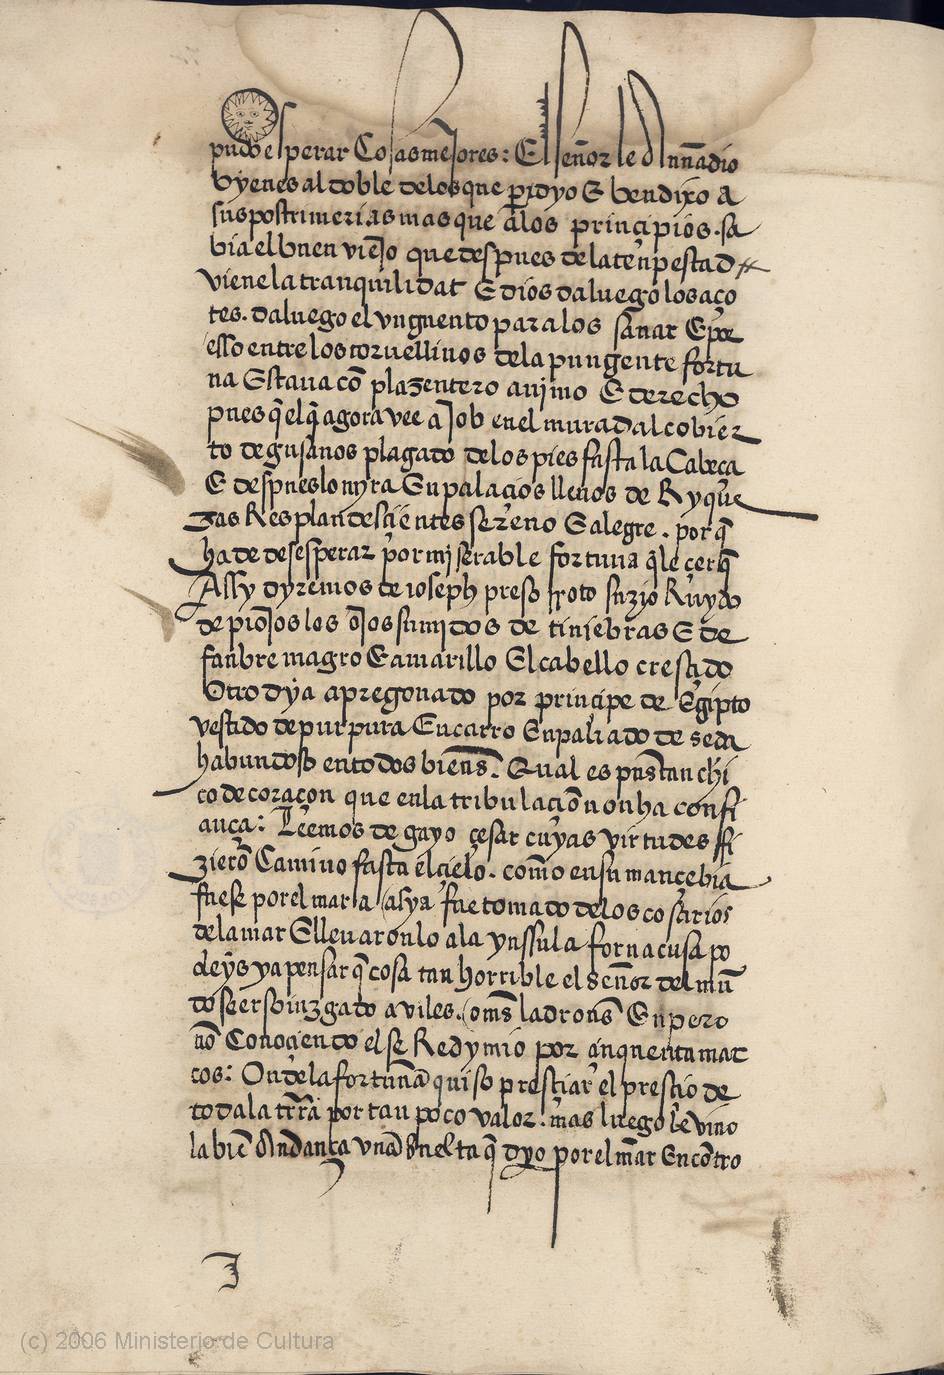 pudo esperar Cosas mejores: El señor le Annadio
byenes al doble delos que pdyo E bendixo A
sus postrimerias mas que alos principios. sa
bia el buen viejo que despues dela tenpestad
viene la tranquilidat E dios da luego los aço
tes. da luego el vnguento para los sanar E por
esso entre los torvellinos dela pungente fortu
na Estaua cõ plazentero animo E derecho
pues q̃ el q̃ agora vee a Job enel muradal cobier
to de gusanos plagado delos pies fasta la Cabeça
E despues lo myra En palacios llenos de Ryque
zas Resplandesçientes sereno E alegre. por q̃
ha de desesperar por miserable fortuna q̃ le cerq̃
Assy dyremos de ioseph preso roto suzio Ruydo
de piojos los ojos sumidos de tiniebras E de
fanbre magro E amarillo El cabello crescido
Otro dya apregonado por principe de Egipto
vestido de purpura En carro Enpaliado de seda
habundoso en todos bienes. Qual es pues tan chi
co de coraçon que enla tribulaciõ non ha confi
ança: Leemos de gayo çesar cuyas virtudes fi
zierõ Camino fasta el çielo. como en su mançebia
fuese por el mar a asya fue tomado delos cosarios
dela mar E lleuaron lo ala ynssula fornacusa po
deys ya pensar q̃ cosa tan horrible el señor del mũ
do seer sojuzgado a viles. omẽs ladrones Enpero
nõ Conociendo el se Redymio por cinquenta mar
cos: Onde la fortuna quiso presciar el prescio de
toda la trra por tan poco valor. mas luego le vino
la biẽ Andança vna buelta q̃ dyo por el mar Encõtro